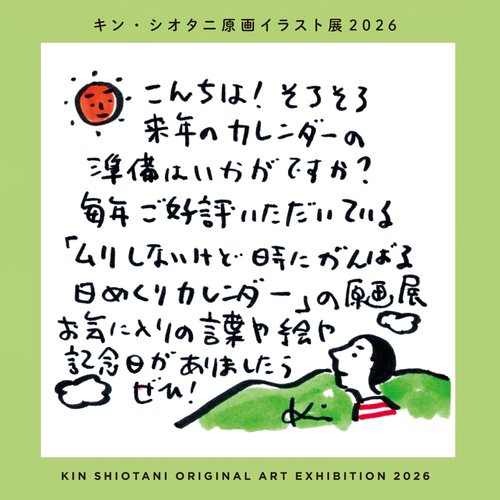 キン・シオタニ原画イラスト展2026
こんちは！そろそろ
来年のカレンダーの
準備はいかがですか？
毎年ご好評いただいている
「ムリしないけど時にがんばる
日めくりカレンダー」の原画展
お気に入りの言葉や絵や
記念日がありましたら
ぜひ！
Kin
KIN SHIOTANI ORIGINAL ART EXHIBITION 2026